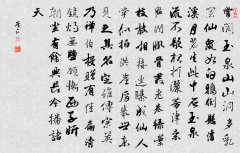 常聞玉泉山山洞多乳
窟仙鼠如白鴉倒懸清
溪月茗生此中石玉泉
流不歇根柯灑芳津采
服潤肌骨叢老卷綠葉
枝枝相接連曝成仙人
掌似拍洪崖肩舉世未
見之其名定誰傳宗英
乃禪伯投贈有佳篇清
鏡燭無鹽顧慚西子妍
朝坐有餘興長吟播諸
天